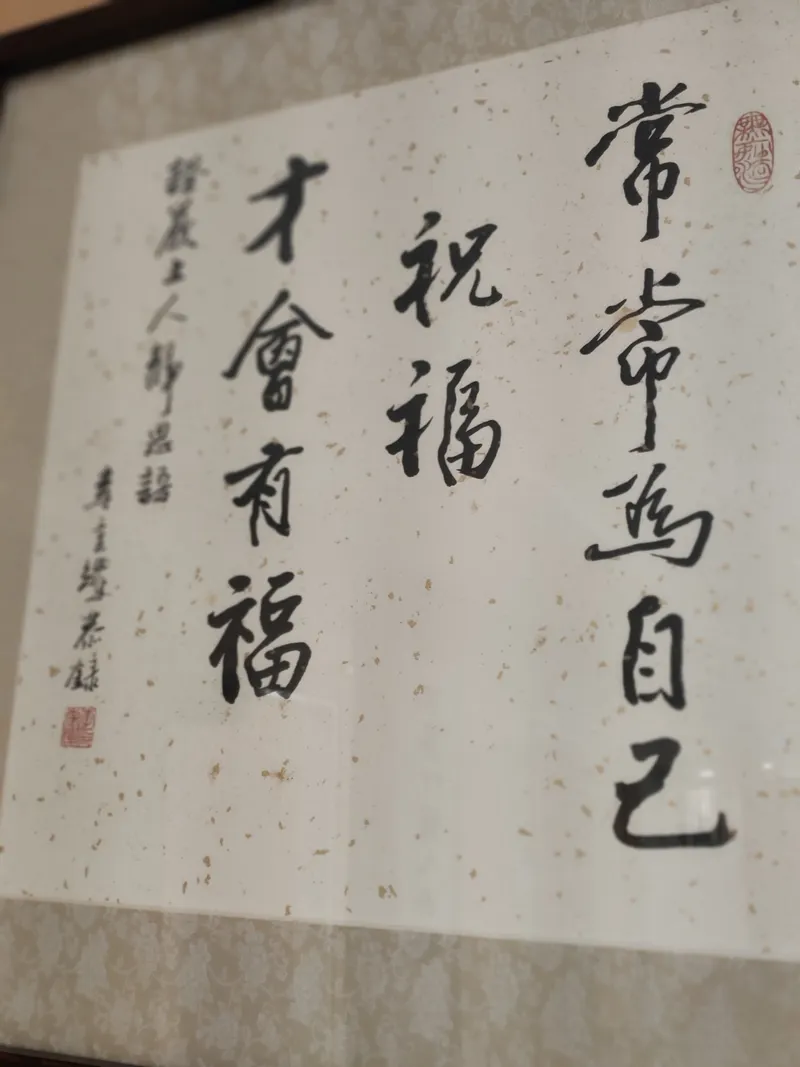 常常為自己
祝福
才會有福
證嚴上人靜思語
恭錄